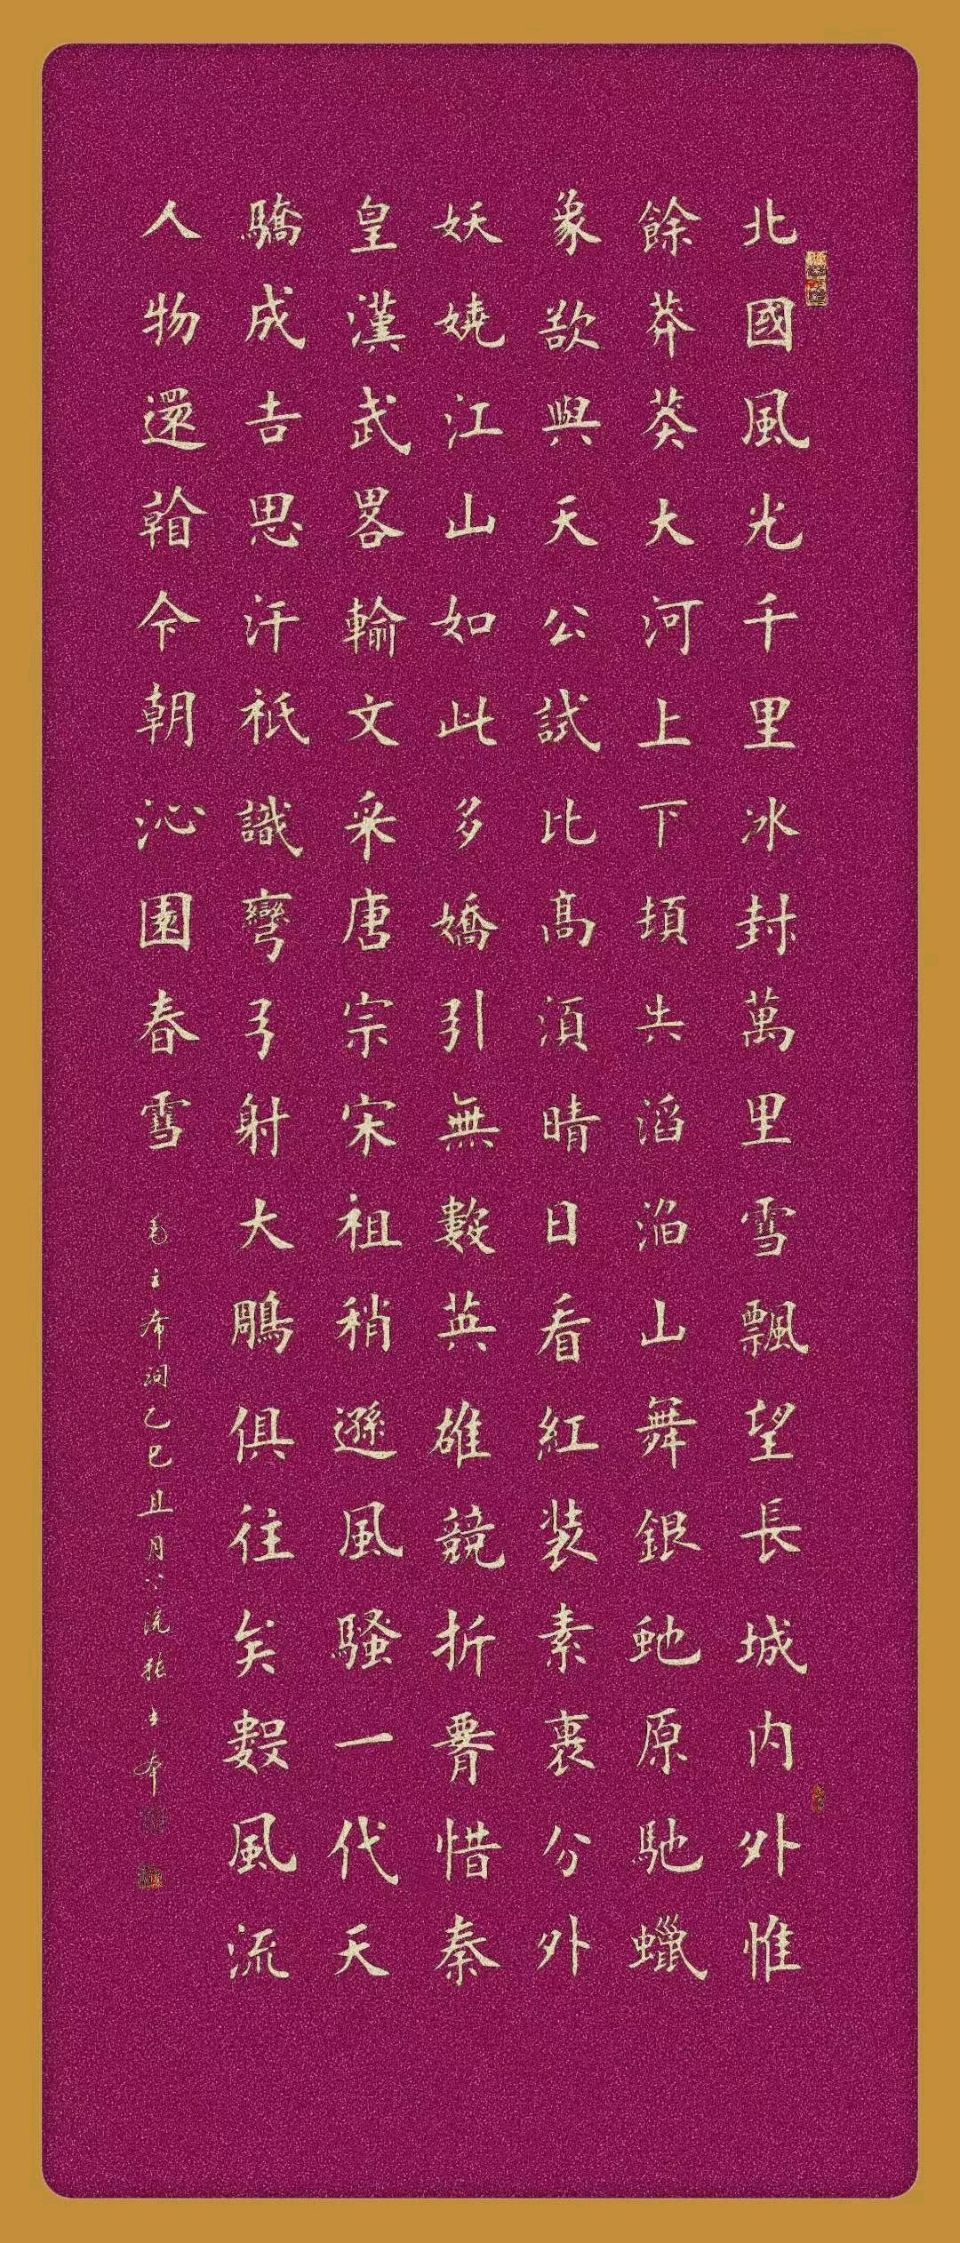 北國風光千里冰封萬里雪飄望長城内外惟
餘莽莽大河上下頓失滔滔山舞銀虵原馳蠟
象欲與天公試比髙須晴日看紅装素裹分外
妖嬈江山如此多嬌引無數英雄競折腰惜秦
皇漢武畧輸文采唐宗宋祖稍遜風騷一代天
驕成吉思汗祇識彎弓射大鵰俱往矣數風流
人物還看今朝沁園春雪
毛主席詞乙巳且月